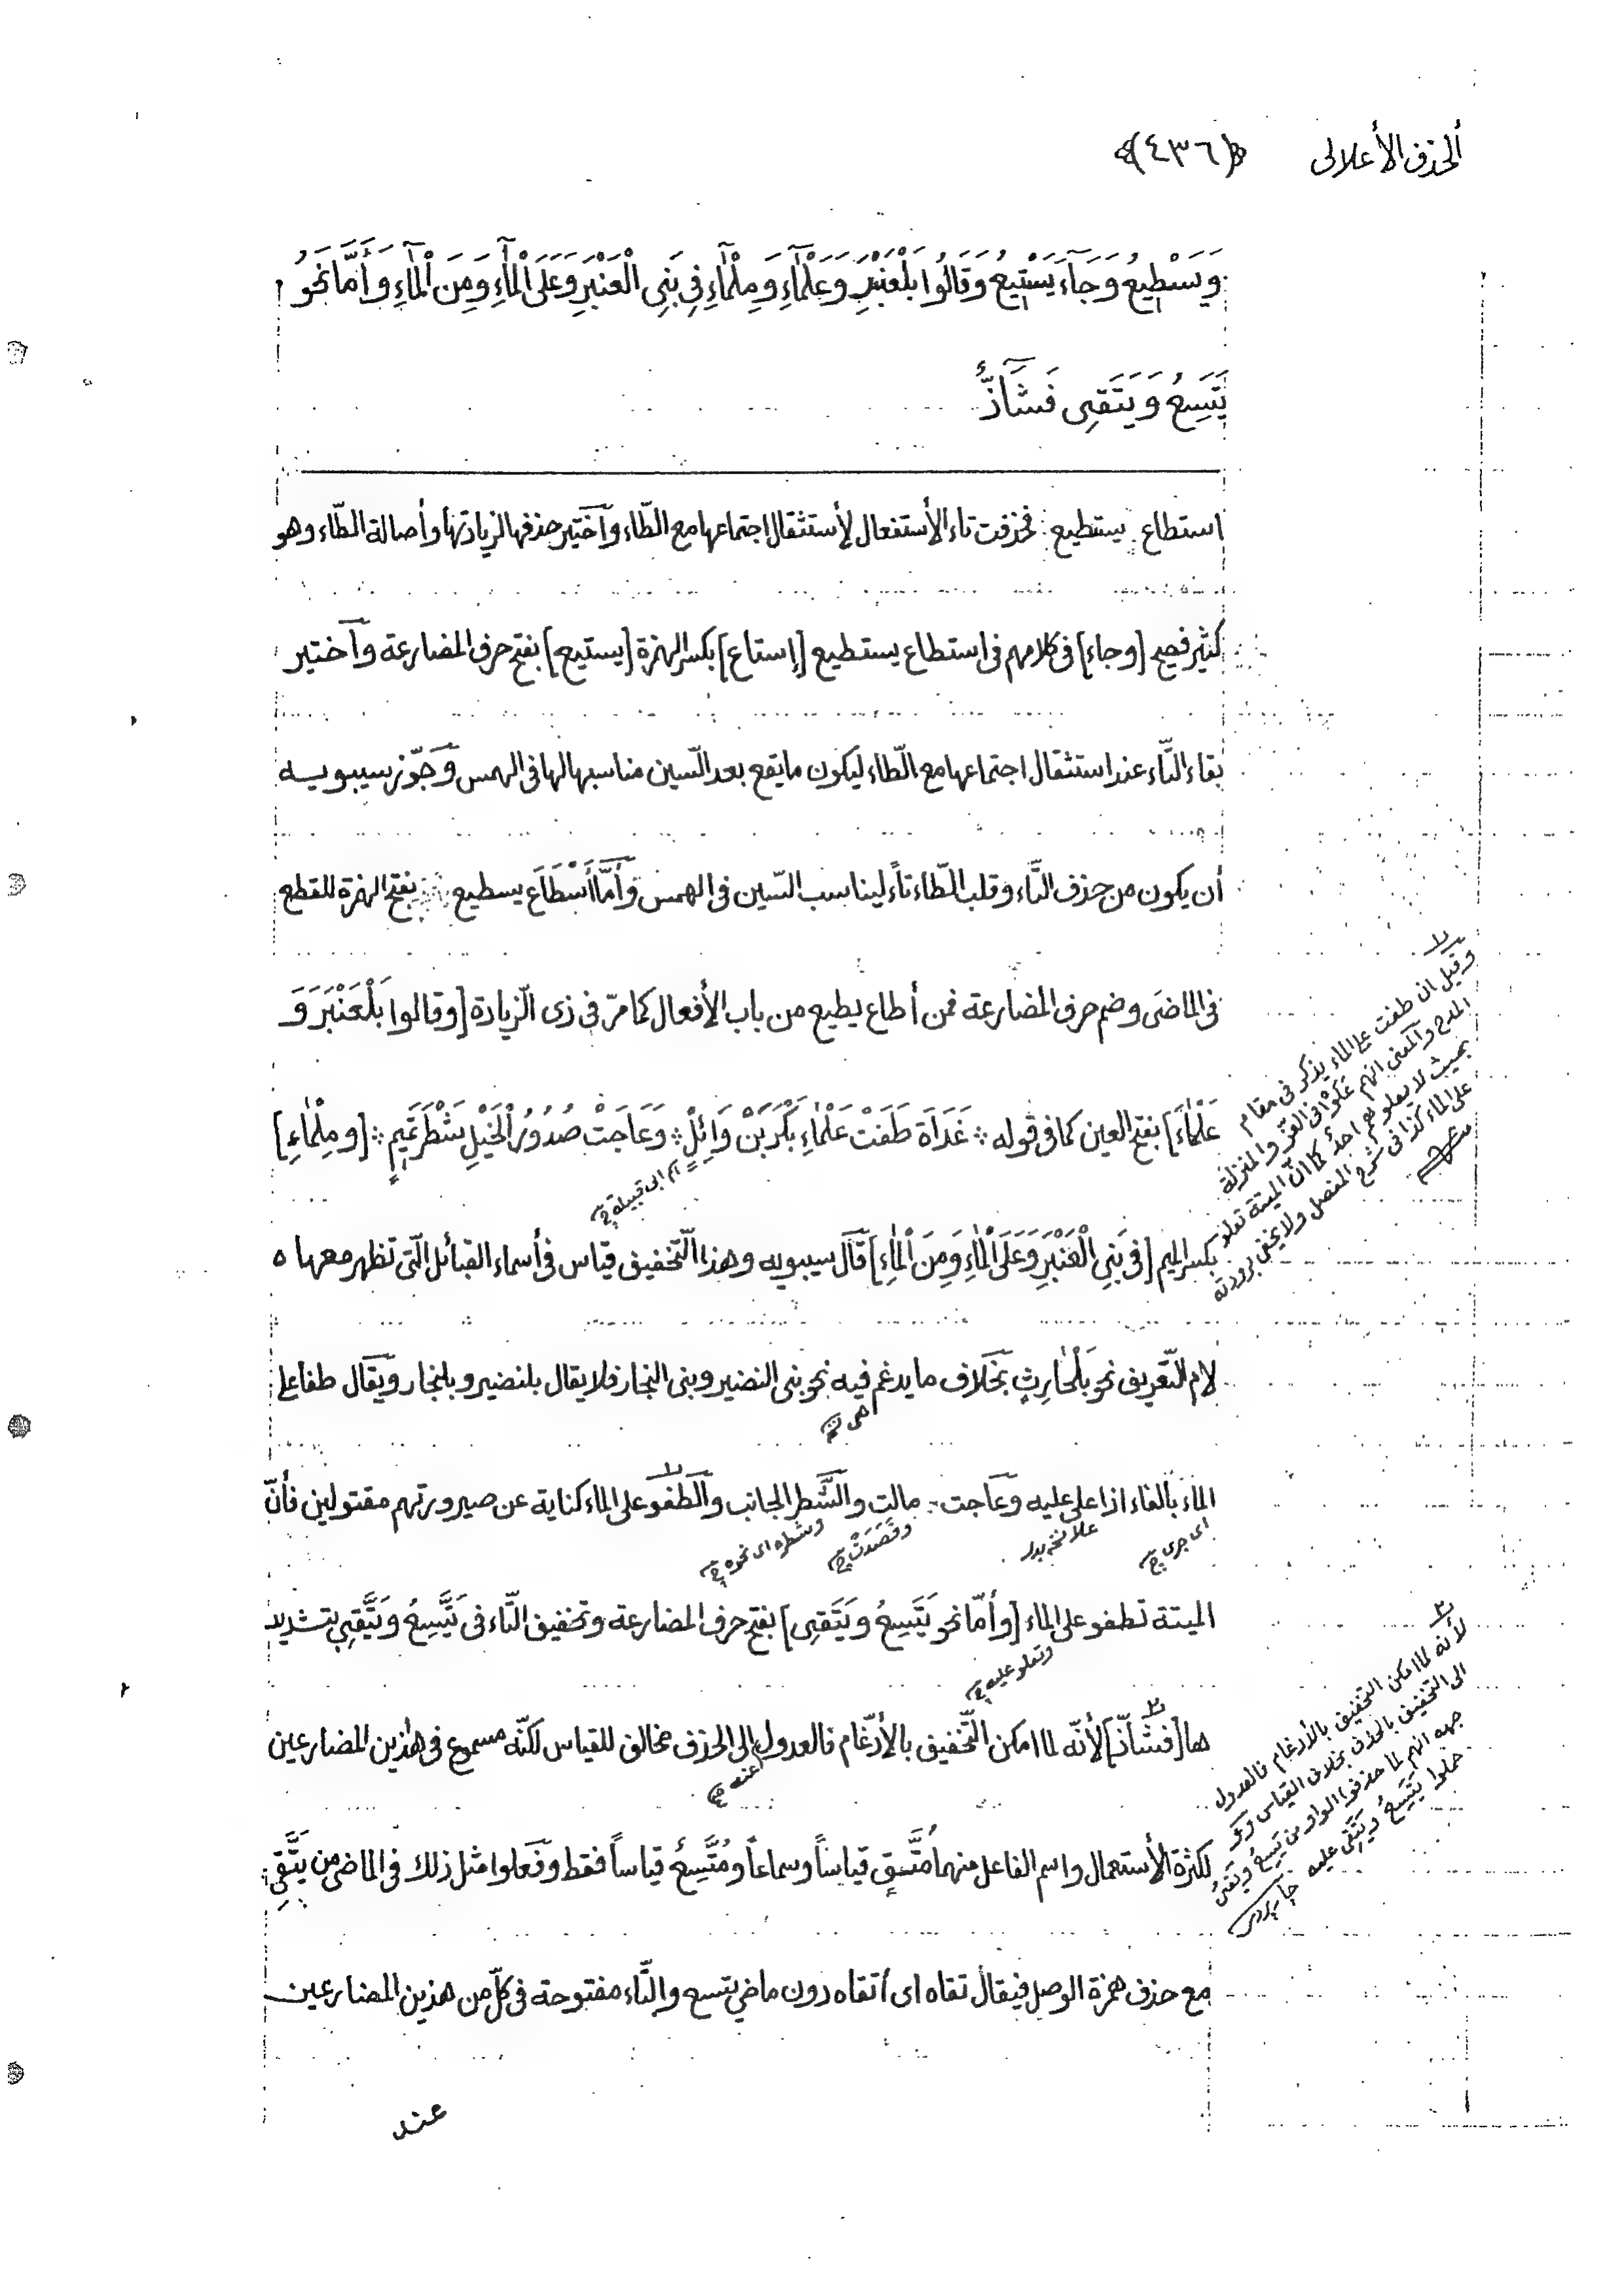 ألحذف الأعلالى ﴿٤٣٦﴾
وَيَسْطِيعُ وَجَآءَ يَسْتِيعُ وَقَالُوا بَلْعَنْبَرِ وَعَلْمَآءِ وَمِلْمَآءِ فِي بَنِي الْعَنْبَرِ وَعَلَى الْمَآءِ وَمِنَ الْمَآءِ وَأَمَّا نَحْوُ
يَتَسِعُ وَيَتَقِى فَشَآذٌّ
استطاع يستطيع فحذفت تاء الأستفعال لأستثقال اجتماعها مع الطّاء وآختير حذفها لزيادتها وأصالة الطّاء وهو
كثير فصيح [وجاء] فى كلامهم فى استطاع يستطيع [إستاع] بكسر الهمزة [يستيع] بفتح حرف المضارعة وآختير
بقاء التّاء عند استثقال اجتماعها مع الطّاء ليكون ما يقع بعد السّين مناسبها لها فى الهمس وجوّز سيبويه
أن يكون من حذف التّاء وقلب الطّاء تاءً ليناسب السّين فى الهمس وأمّا أَسْطَاَع يسطيع بفتح الهمزة للقطع
فى الماضى وضم حرف المضارعة فمن أطاع يطيع من باب الأفعال كما مرّ فى ذى الزّيادة [وقالوا بَلْعَنْبَرَ وَ
عَلْمَاءِ] بفتح العين كما فى قوله ؞ غَدَاَةَ طَفَتْ عَلْمَاءِ بَكْرَ بْنَ وَاَئِلٍ ؞ وَعَاَجَتْ صُدُورُ الْخَيْلِ شَطْرَ تَمِيمٍ ؞ [وَ مِلْمَاءِ]
أم ابى قبيلة
بكسر الميم [فى بَنِي الْعَنْبَرِ وَعَلَى الْمَاءِ وَمِنَ الْمَاءِ] قال سيبويه وهذا التّخفيف قياس فى أسماء القبائل الّتى تظهر معها ه
لام التّعريف نحو بَلْحَارِثِ بخلاف ما يدغم فيه نحو بنى النضير وبنى النجار فلا يقال بلنضير وبلنجار ويقال طفا على
الماء بالفاء اذا على عليه وعاجت مالت والشّطر الجانب والطفو على الماء كناية عن صيرورتهم مقتولين فأنّ
اى جرى
علا نخه بدل
وقَصَدَتْ
وشطره اى نحوه
الميتة تطفو على الماء [وأمّا نحو يَتَسِعُ وَيَتَقِى] بفتح حرف المضارعة وتخفيف التّاء فى يَتَّسِعُ وَيَتَّقِى بتشديد
وتعلو عليه
ها [فشاذّ] لأنّه لما امكن التّخفيف بالأدّغام فالعدول إلى الحذف مخالف للقياس لكنّه مسموع فى هذين المضارعين
عنه
لكثرة الأستعمال واسم الفاعل منهما مُتَّقٍ قياساً وسماعاً ومُتَّسِعٌ قياساً فقط وفعلوا مثل ذلك فى الماضى من يَتَّقِى
مع حذف همزة الوصل فيقال تقاه اى أتقاه دون ماضى يتسع والتّاء مفتوحة فى كلّ من هذين المضارعين
عند
وقيل ان طفت على الماء يذكر فى مقام
المدح والمعنى انهم عَلَوْا فى العزّ والمنزلة
بحيث لا يعلو بهم احدٌ كما انّ الميتة تعلو
على الماء كذا فى شرح المفصل ولا يخفى برودته
لأنه لما امكن التخفيف بالأدغام فالعدول
الى التخفيف بالحذف بخلاف القياس و
جهه انهم لما حذفوا الواو من يَسِعُ ويَقى
حملوا يَتَسِعُ ويَتَقى عليه جاربردى